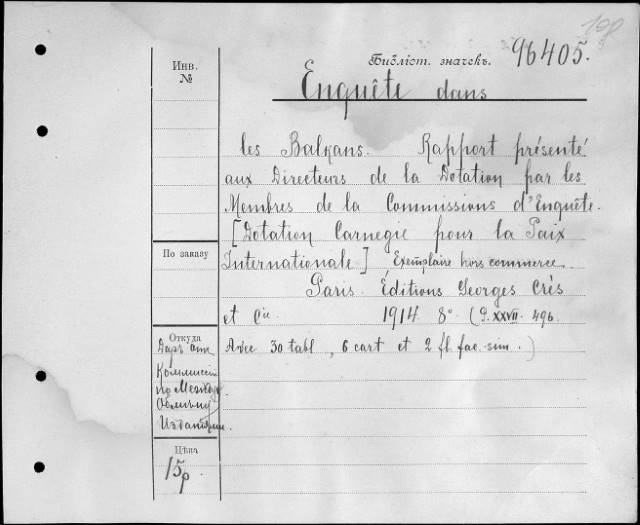 Инв.
№
Библіот. значекъ. 96405.
Enquête dans
les Balkans. Rapport présenté
aux Directeurs de la Dotation par les
Membres de la Commissions d'Enquête.
[Dotation Carnegie pour la Paix
Internationale] Exemplaire hors commerce.
Paris. Éditions Georges Crès
et Cie 1914 8° (P. XXVII. 496.
Avec 30 tabl, 6 cart et 2 fl. fac. sim.)
По заказу
Откуда
Даръ отъ
Комиссіи
по Междун.
Обмѣну
Изданіями.
Цѣна
15р